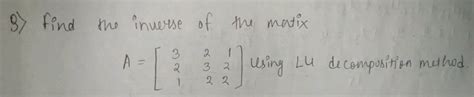 8) find the inverse of the matix
A = [ 3 2 1
2 3 2
1 2 2 ] using LU decomposition method.